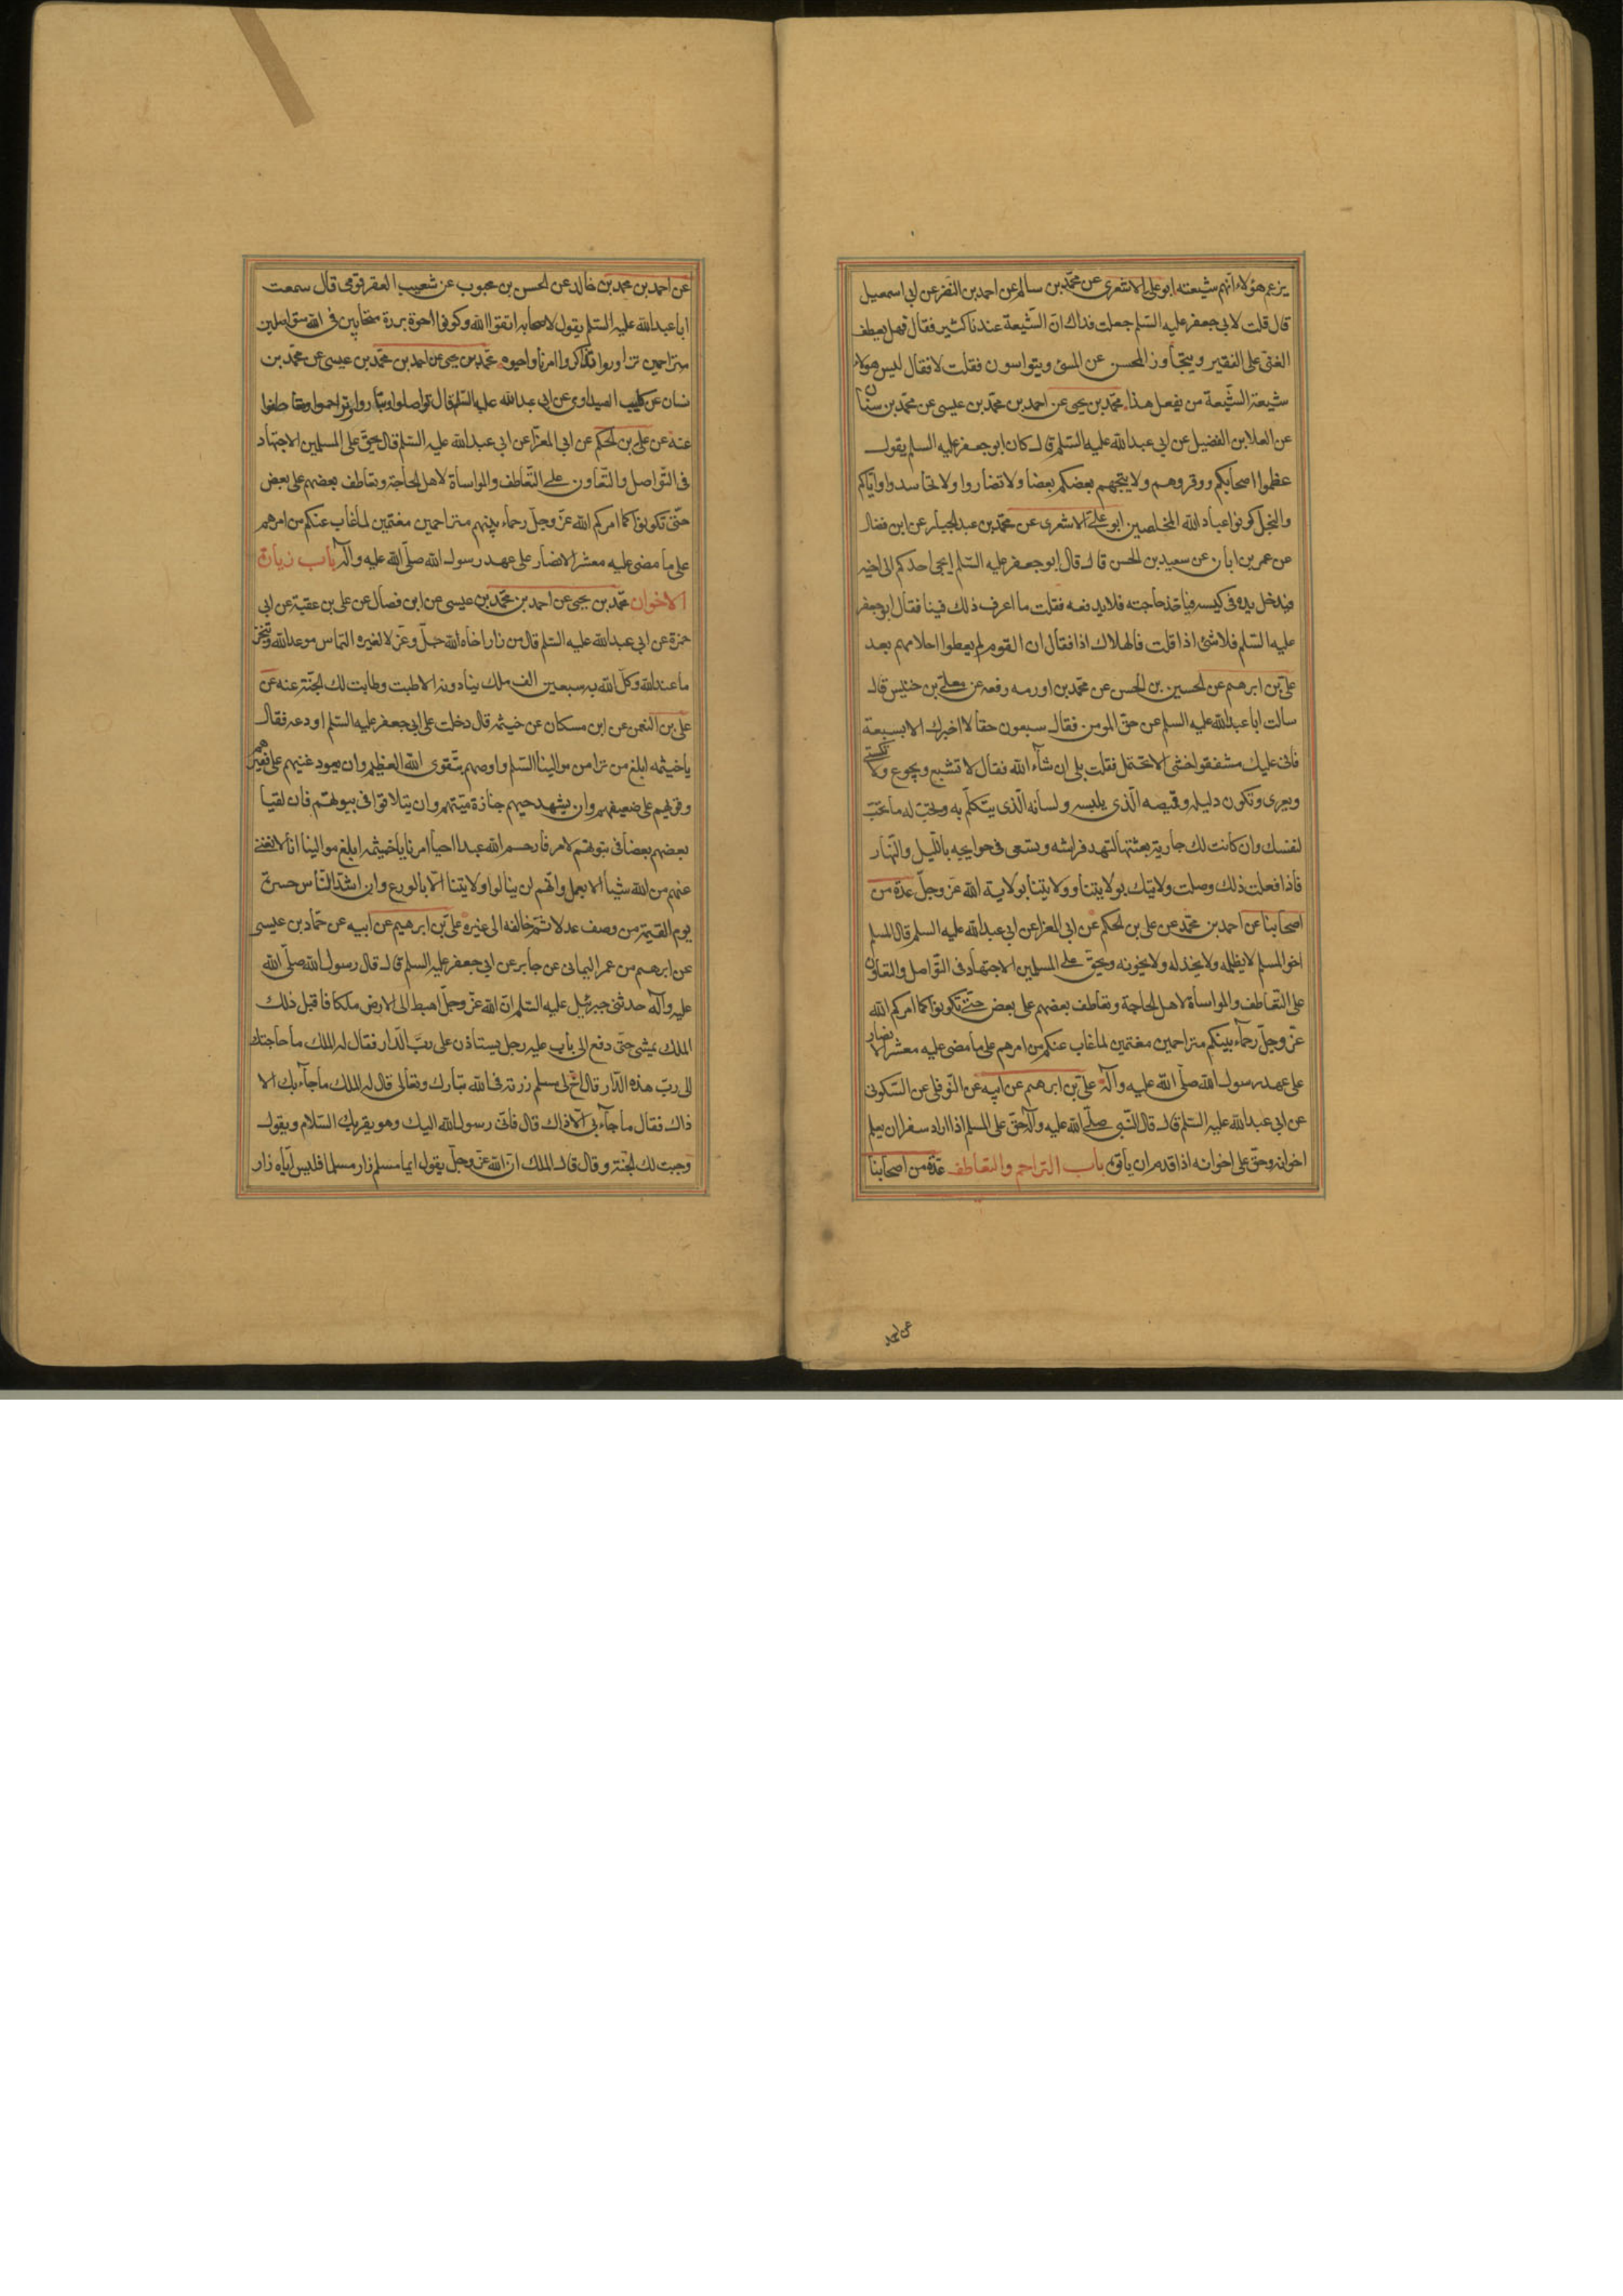 يزعم هؤلاء انهم شيعته ابو علي الاشعري عن محمّد بن سالم عن احمد بن النضر عن ابي اسمعيل
قال قلت لابي جعفر عليه السّلم جعلت فداك انّ الشّيعة عندنا كثير فقال فهل يعطف
الغنى على الفقير ويتجاوز المحسن عن المسئ ويتواسون فقلت لا فقال ليس هولاء
شيعة الشّيعة من يفعل هذا محمّد بن يحيى عن احمد بن محمّد بن عيسى عن محمّد بن سنان
عن العلا بن الفضيل عن ابي عبد الله عليه السّلم قال كان ابو جعفر عليه السلم يقول
عظموا اصحابكم ووقروهم ولا يتجهم بعضكم بعضا ولا تضاروا ولا تحاسدوا واياكم
والبخل كونوا عباد الله المخلصين ابو علي الاشعرى عن محمّد بن عبد الجبار عن ابن فضال
عن عمر بن ابان عن سعيد بن الحسن قال قال ابو جعفر عليه السّلم ايجئ احدكم الى اخيه
فيدخل يده في كيسه فيأخذ حاجته فلا يدفعه فقلت ما اعرف ذلك فينا فقال ابو جعفر
عليه السّلم فلا شئ اذا قلت فالهلاك اذا فقال ان القوم لم يعطوا احلامهم بعد
علىّ بن ابرهيم عن الحسين بن الحسن عن محمّد بن اورمه رفعه عن معلى بن خنيس قال
سألت ابا عبد الله عليه السلم عن حق المومن فقال سبعون حقا لا اخبرك الا بسبعة
فانى عليك مشفق اخشى الا تحتمل فقلت بلى ان شآء الله فقال لا تشبع ويجوع ولا تكتسى
ويعرى وتكون دليله وقميصه الّذى يلبسه ولسانه الّذى يتكلّم به وتحبّ له ما تحبّ
لنفسك وان كانت لك جارية بعثتها لتمهد فراشه وتسعى فى حوايجه بالّليل والنّهار
فاذا فعلت ذلك وصلت ولايتك بولايتنا وولايتنا بولاية الله عزّ وجلّ عدّة من
اصحابنا عن احمد بن محمّد عن على بن الحكم عن ابى المعزا عن ابى عبد الله عليه السلم قال المسلم
اخو المسلم لا يظلمه ولا يخذله ولا يخونه ويحقّ على المسلمين الاجتهاد فى التّواصل والتعاون
على التّعاطف والمواساة لاهل الحاجة وتعاطف بعضهم على بعض حتّى تكونوا كما امركم الله
عزّ وجلّ رحمآء بينكم متراحمين مغتمين لما غاب عنكم من امرهم على ما مضى عليه معشر الانصار
على عهد رسول الله صلّى الله عليه وآله علىّ بن ابرهيم عن ابيه عن النّوفلى عن السّكونى
عن ابى عبد الله عليه السّلم قال قال النّبى صلّى الله عليه وآله حقّ على المسلم اذا اراد سفرا ان يعلم
اخوانه وحقّ على اخوانه اذا قدم ان يأتوه باب التراحم والتعاطف عدّة من اصحابنا
عن احمد
عن احمد بن محمد بن خالد عن الحسن بن محبوب عن شعيب العقرقوفى قال سمعت
ابا عبد الله عليه السّلم يقول لاصحابه اتقوا الله وكونوا اخوة بررة متحابين فى الله متواصلين
متراحمين تزاوروا تذاكروا امرنا واحيوه محمّد بن يحيى عن احمد بن محمّد بن عيسى عن محمّد بن
سنان عن كليب الصيداوى عن ابى عبد الله عليه السّلم قال تواصلوا وتبارروا وتراحموا وتعاطفوا
عنه عن على بن الحكم عن ابى المعزا عن ابى عبد الله عليه السّلم قال يحقّ على المسلمين الاجتهاد
فى التّواصل والتّعاون على التّعاطف والمواساة لاهل الحاجة وتعاطف بعضهم على بعض
حتّى تكونوا كما امركم الله عزّ وجلّ رحماء بينهم متراحمين مغتمين لما غاب عنكم من امرهم
على ما مضى عليه معشر الانصار على عهد رسول الله صلّى الله عليه وآله باب زيارة
الاخوان محمّد بن يحيى عن احمد بن محمّد بن عيسى عن ابن فضال عن على بن عقبة عن ابى
حمزة عن ابى عبد الله عليه السّلم قال من زار اخاه لله جلّ وعزّ لا لغيره التماس موعد الله وتنجّز
ما عند الله وكلّ الله به سبعين الف ملك ينادونه الا طبت وطابت لك الجنّة عنه عن
على بن النعمن عن ابن مسكان عن خيثمه قال دخلت على ابى جعفر عليه السّلم اودعه فقال
يا خيثمه ابلغ من ترا من موالينا السّلم واوصهم بتقوى الله العظيم وان يعود غنيهم على فقيرهم
وقويهم على ضعيفهم وان يشهد حيهم جنازة ميّتهم وان يتلاقوا فى بيوتهم فان لقيا
بعضهم بعضا فى بيوتهم لامرنا رحم الله عبدا احيا امرنا يا خيثمه ابلغ موالينا انا لا نغنى
عنهم من الله شيأ الا بعمل وانّهم لن ينالوا ولايتنا الّا بالورع وان اشدّ النّاس حسرة
يوم القيمة من وصف عدلا ثمّ خالفه الى غيره علىّ بن ابرهيم عن ابيه عن حمّاد بن عيسى
عن ابرهيم من عمر اليمانى عن جابر عن ابى جعفر عليه السلم قال قال رسول الله صلّى الله
عليه وآله حدثنى جبرئيل عليه السّلم انّ الله عزّ وجلّ اهبط الى الارض ملكا فاقبل ذلك
الملك يمشى حتّى دفع الى باب عليه رجل يستاذن على ربّ الدّار فقال له الملك ما حاجتك
الى ربّ هذه الدّار قال اخ لى مسلم زرته فى الله تبارك وتعالى قال له الملك ما جآء بك الا
ذاك فقال ما جآء بى الّا ذاك قال فانّى رسول الله اليك وهو يقريك السّلام ويقول
وجبت لك الجنّة وقال قال الملك انّ الله عزّ وجلّ يقول ايما مسلم زار مسلما فليس ايّاه زار